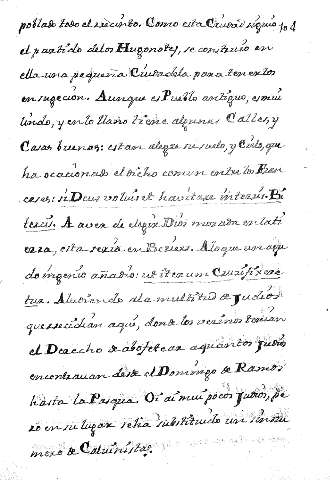 poblado todo el recinto. Como esta Ciudad siguió 104
el partido de los Hugonotes, se construió en
ella una pequeña Ciudadela para tenerlos
en sugecion. Aunque es Pueblo antiguo, es mui
lindo, y en lo llano tiene algunas Calles, y
Casas buenas: es tan alegre su suelo, y Cielo, que
ha ocacionado el dicho comun entre los Fran
ceses: si Deus voluiset havitare in terris. Bi
terris. A aver de elegir Dios morada en la ti
erra, esta seria en Beciers. A lo que un agu
do ingenio añadio: ut iterum Crusifixare
tur. Aludiendo a la multitud de Judios
que recidian aqui, donde los vecinos tenian
el Derecho de abofetear a quantos Judios
encontravan desde el Domingo de Ramos
hasta la Pasqua. Oi ai mui pocos Judios, pe
ro en su lugar se ha substituido un sinnu
mero de Calvinistas.